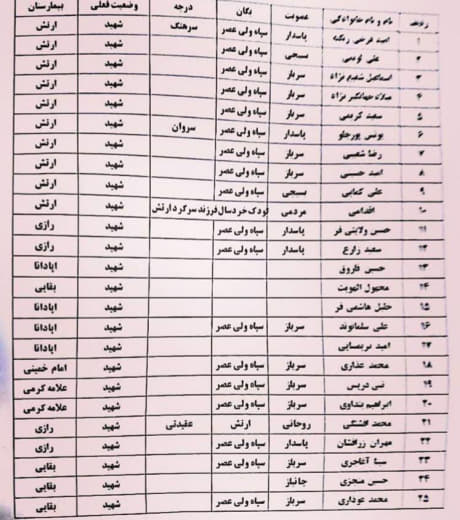 ردیف نام و نام خانوادگی عضویت یگان درجه وضعیت فعلی بیمارستان
۱ پاسدار سپاه ولی عصر سرهنگ شهید ارتش
۲ بسیجی سپاه ولی عصر شهید ارتش
۳ سرباز سپاه ولی عصر شهید ارتش
۴ سرباز سپاه ولی عصر شهید ارتش
۵ سعید کریمی سرباز سپاه ولی عصر شهید ارتش
۶ یونس پورجلو پاسدار سپاه ولی عصر سروان شهید ارتش
۷ رضا شعیبی سرباز سپاه ولی عصر شهید ارتش
۸ حسینی سرباز سپاه ولی عصر شهید ارتش
۹ علی کمایی بسیجی سپاه ولی عصر شهید ارتش
۱۰ اقدامی مردمی کودک خردسال فرزند سرگرد ارتش شهید ارتش
۱۱ حسین ولایتی فر پاسدار سپاه ولی عصر شهید رازی
۱۲ سعید زارع پاسدار سپاه ولی عصر شهید رازی
۱۳ حسین فاروق شهید اپادانا
۱۴ مجهول الهویت شهید بقایی
۱۵ هاشمی فر شهید اپادانا
۱۶ علی سلمانوند سرباز سپاه ولی عصر شهید اپادانا
۱۷ امید شهید اپادانا
۱۸ محمد عذاری سرباز سپاه ولی عصر شهید امام خمینی
۱۹ نبی دریس سرباز سپاه ولی عصر شهید علامه کرمی
۲۰ ابراهیم بنداوی سرباز سپاه ولی عصر شهید علامه کرمی
۲۱ محمد روحانی ارتش عقیدتی شهید رازی
۲۲ مهران زرافشان پاسدار سپاه ولی عصر شهید رازی
۲۳ سینا آغاجری سرباز سپاه ولی عصر شهید بقایی
۲۴ حسین منجزی جانباز شهید بقایی
۲۵ محمد عوداری سرباز سپاه ولی عصر شهید بقایی